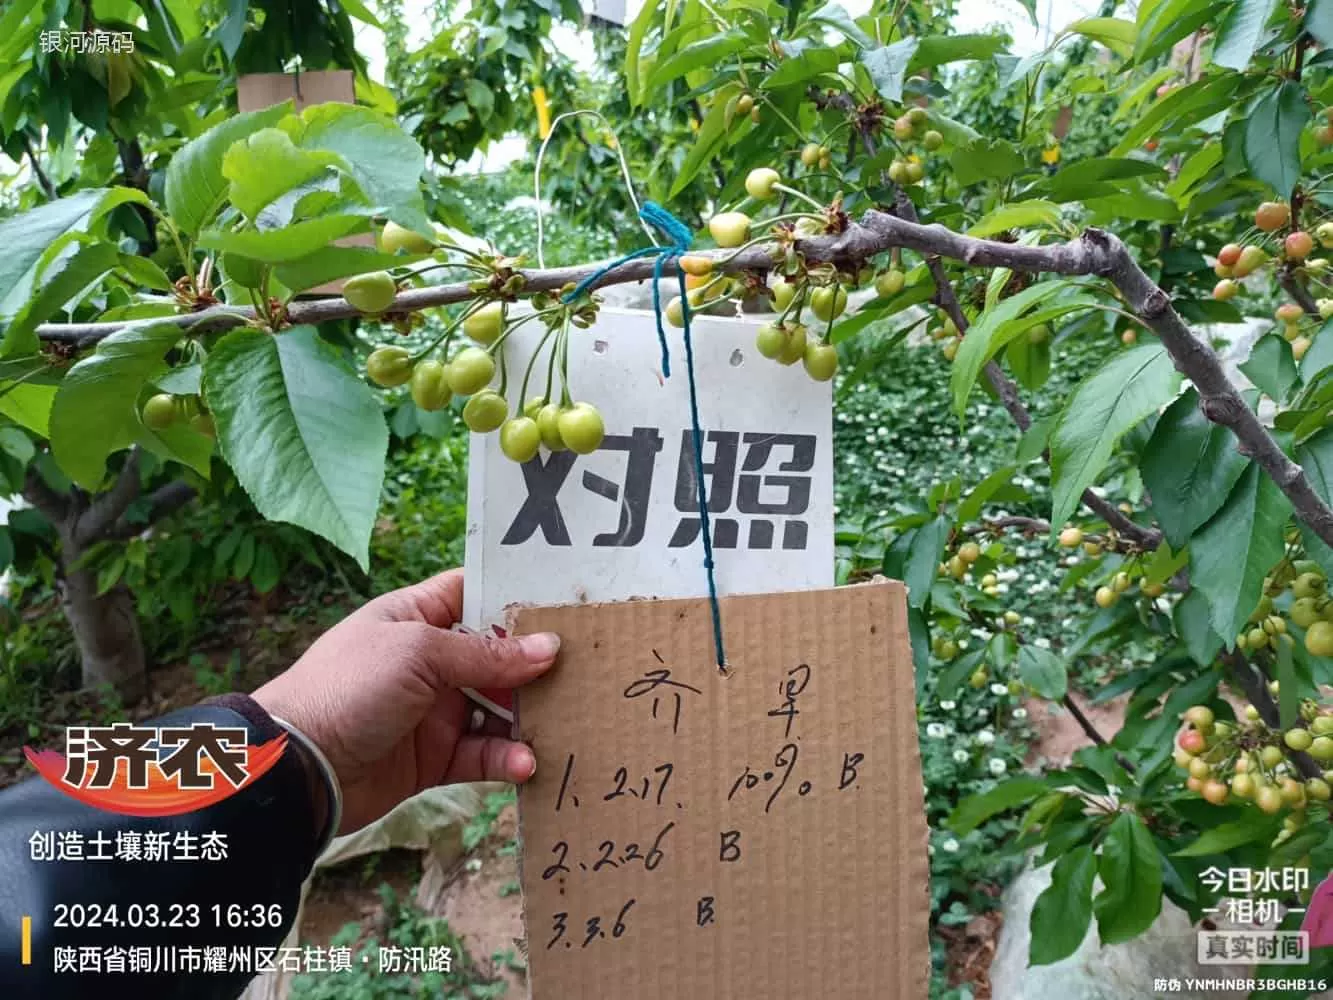 银河源码
对照
齐早
1、2.17. 100% B
2、2.26 B
3、3.6 B
济农
创造土壤新生态
2024.03.23 16:36
陕西省铜川市耀州区石柱镇·防汛路
今日水印
-相机-
真实时间
防伪 YNMHNBR3BGHB16